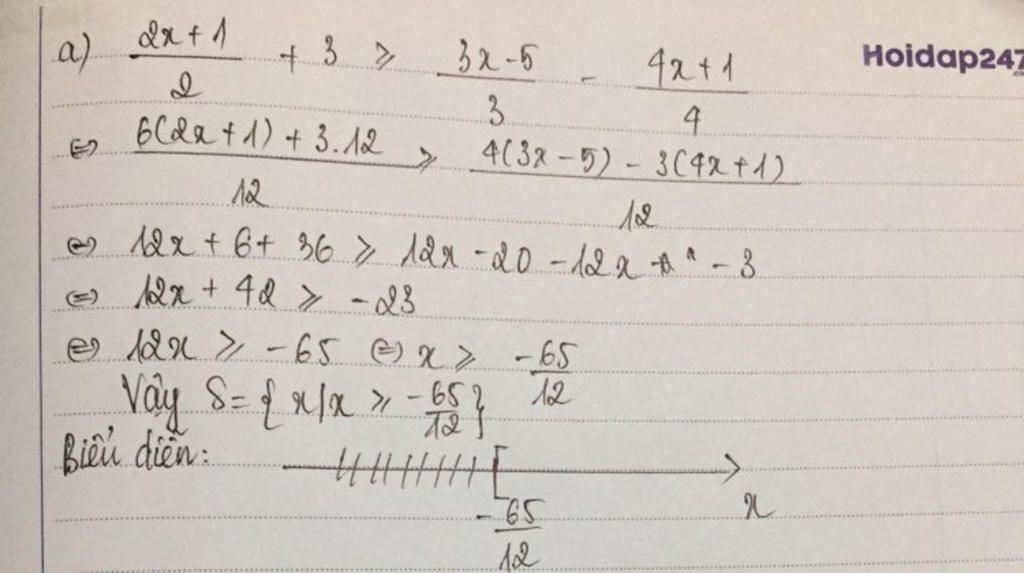 a) (2x+1)/2 + 3 ≥ (3x-5)/3 - (4x+1)/4
Hoidap247
.com
⇔ (6(2x+1) + 3.12)/12 ≥ (4(3x-5) - 3(4x+1))/12
⇔ 12x + 6 + 36 ≥ 12x - 20 - 12x - 3
⇔ 12x + 42 ≥ -23
⇔ 12x ≥ -65 ⇔ x ≥ -65/12
Vậy S = { x/x ≥ -65/12 }
Biểu diễn:
x
-65/12